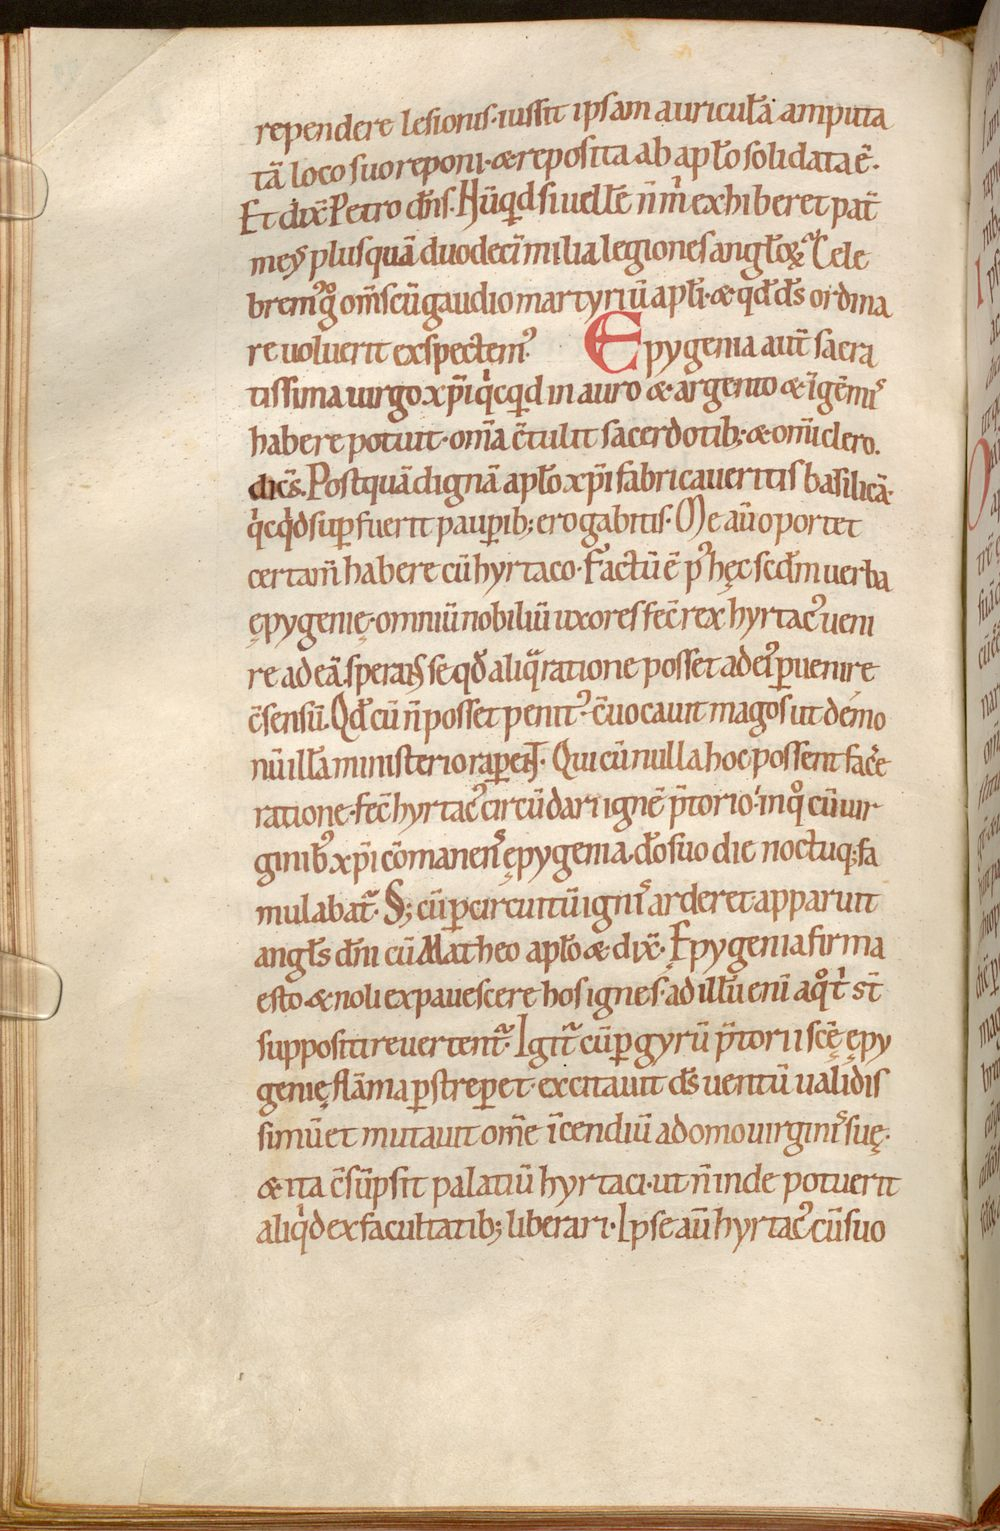 rependere lesionis·iussit ipsam auriculā amputa
tā loco suo reponi·& reposita ab apło solidata ē·
Et dix̄ Petro dn̄s·Nūq̇d si uellē n̄ m̊ exhiberet pat̄
meꝰ plusquā duodeci milia legiones angłoꝝ? Cele
bremꝰ g̊ om̄s cū gaudio martyriū apłi·& qd̄ d̄s ordina
re uoluerit exspectemꝰ· Epygenia aut̄ sacra
tissima uirgo xp̄i q̇cq̇d in auro & argento & ī gēmis
habere potuit·om̄a c̄tulit sacerdotib;·& om̄i clero.
dicēs. Postquā dignā apło xp̄i fabricaueritis basilicā·
q̇cq̇d suꝑfuerit pauꝑib; erogabitis·Me aū oportet
certam̄ habere cū hyrtaco·Factū ē p̾ hęc scd̄m uerba
ępygenię·omniū nobiliū uxores fec̄ rex hyrtacꝰ ueni
re ad eā·sperans se qd̄ aliq̈ ratione posset ad eiꝰ ꝑuenire
c̄sensū·Qd̄ cū n̄ posset penitꝰ·c̄uocauit magos ut démo
nū illā ministerio raꝑent·Qui cū nulla hoc possent fac̄e
ratione·fec̄ hyrtacꝰ circūdari ignē p̄torio·in q̊ cū uir
ginibꝰ xp̄i cōmanens ępygenia·dō suo die noctuq; fa
mulabat᷑·S; cū ꝑ circuitū ignis arderet·apparuit
angłs dn̄i cū Matheo apło & dix̄·Ępygenia firma
esto & noli expauescere hos ignes·ad illū enī a q̊ t̓ st̄
suppositi reuertent᷑·Igit᷑ cū ꝑ gyrū p̄torii scę̄ ępy
genię flāma ꝑstreꝑet·excitauit d̄s uentū ualidis
simū et mutauit om̄e īcendiū a domo uirginis suę·
& ita c̄sūpsit palatiū hyrtaci·ut n̄ inde potuerit
aliq̇d ex facultatib; liberari·Ipse aū hyrtacꝰ cū suo